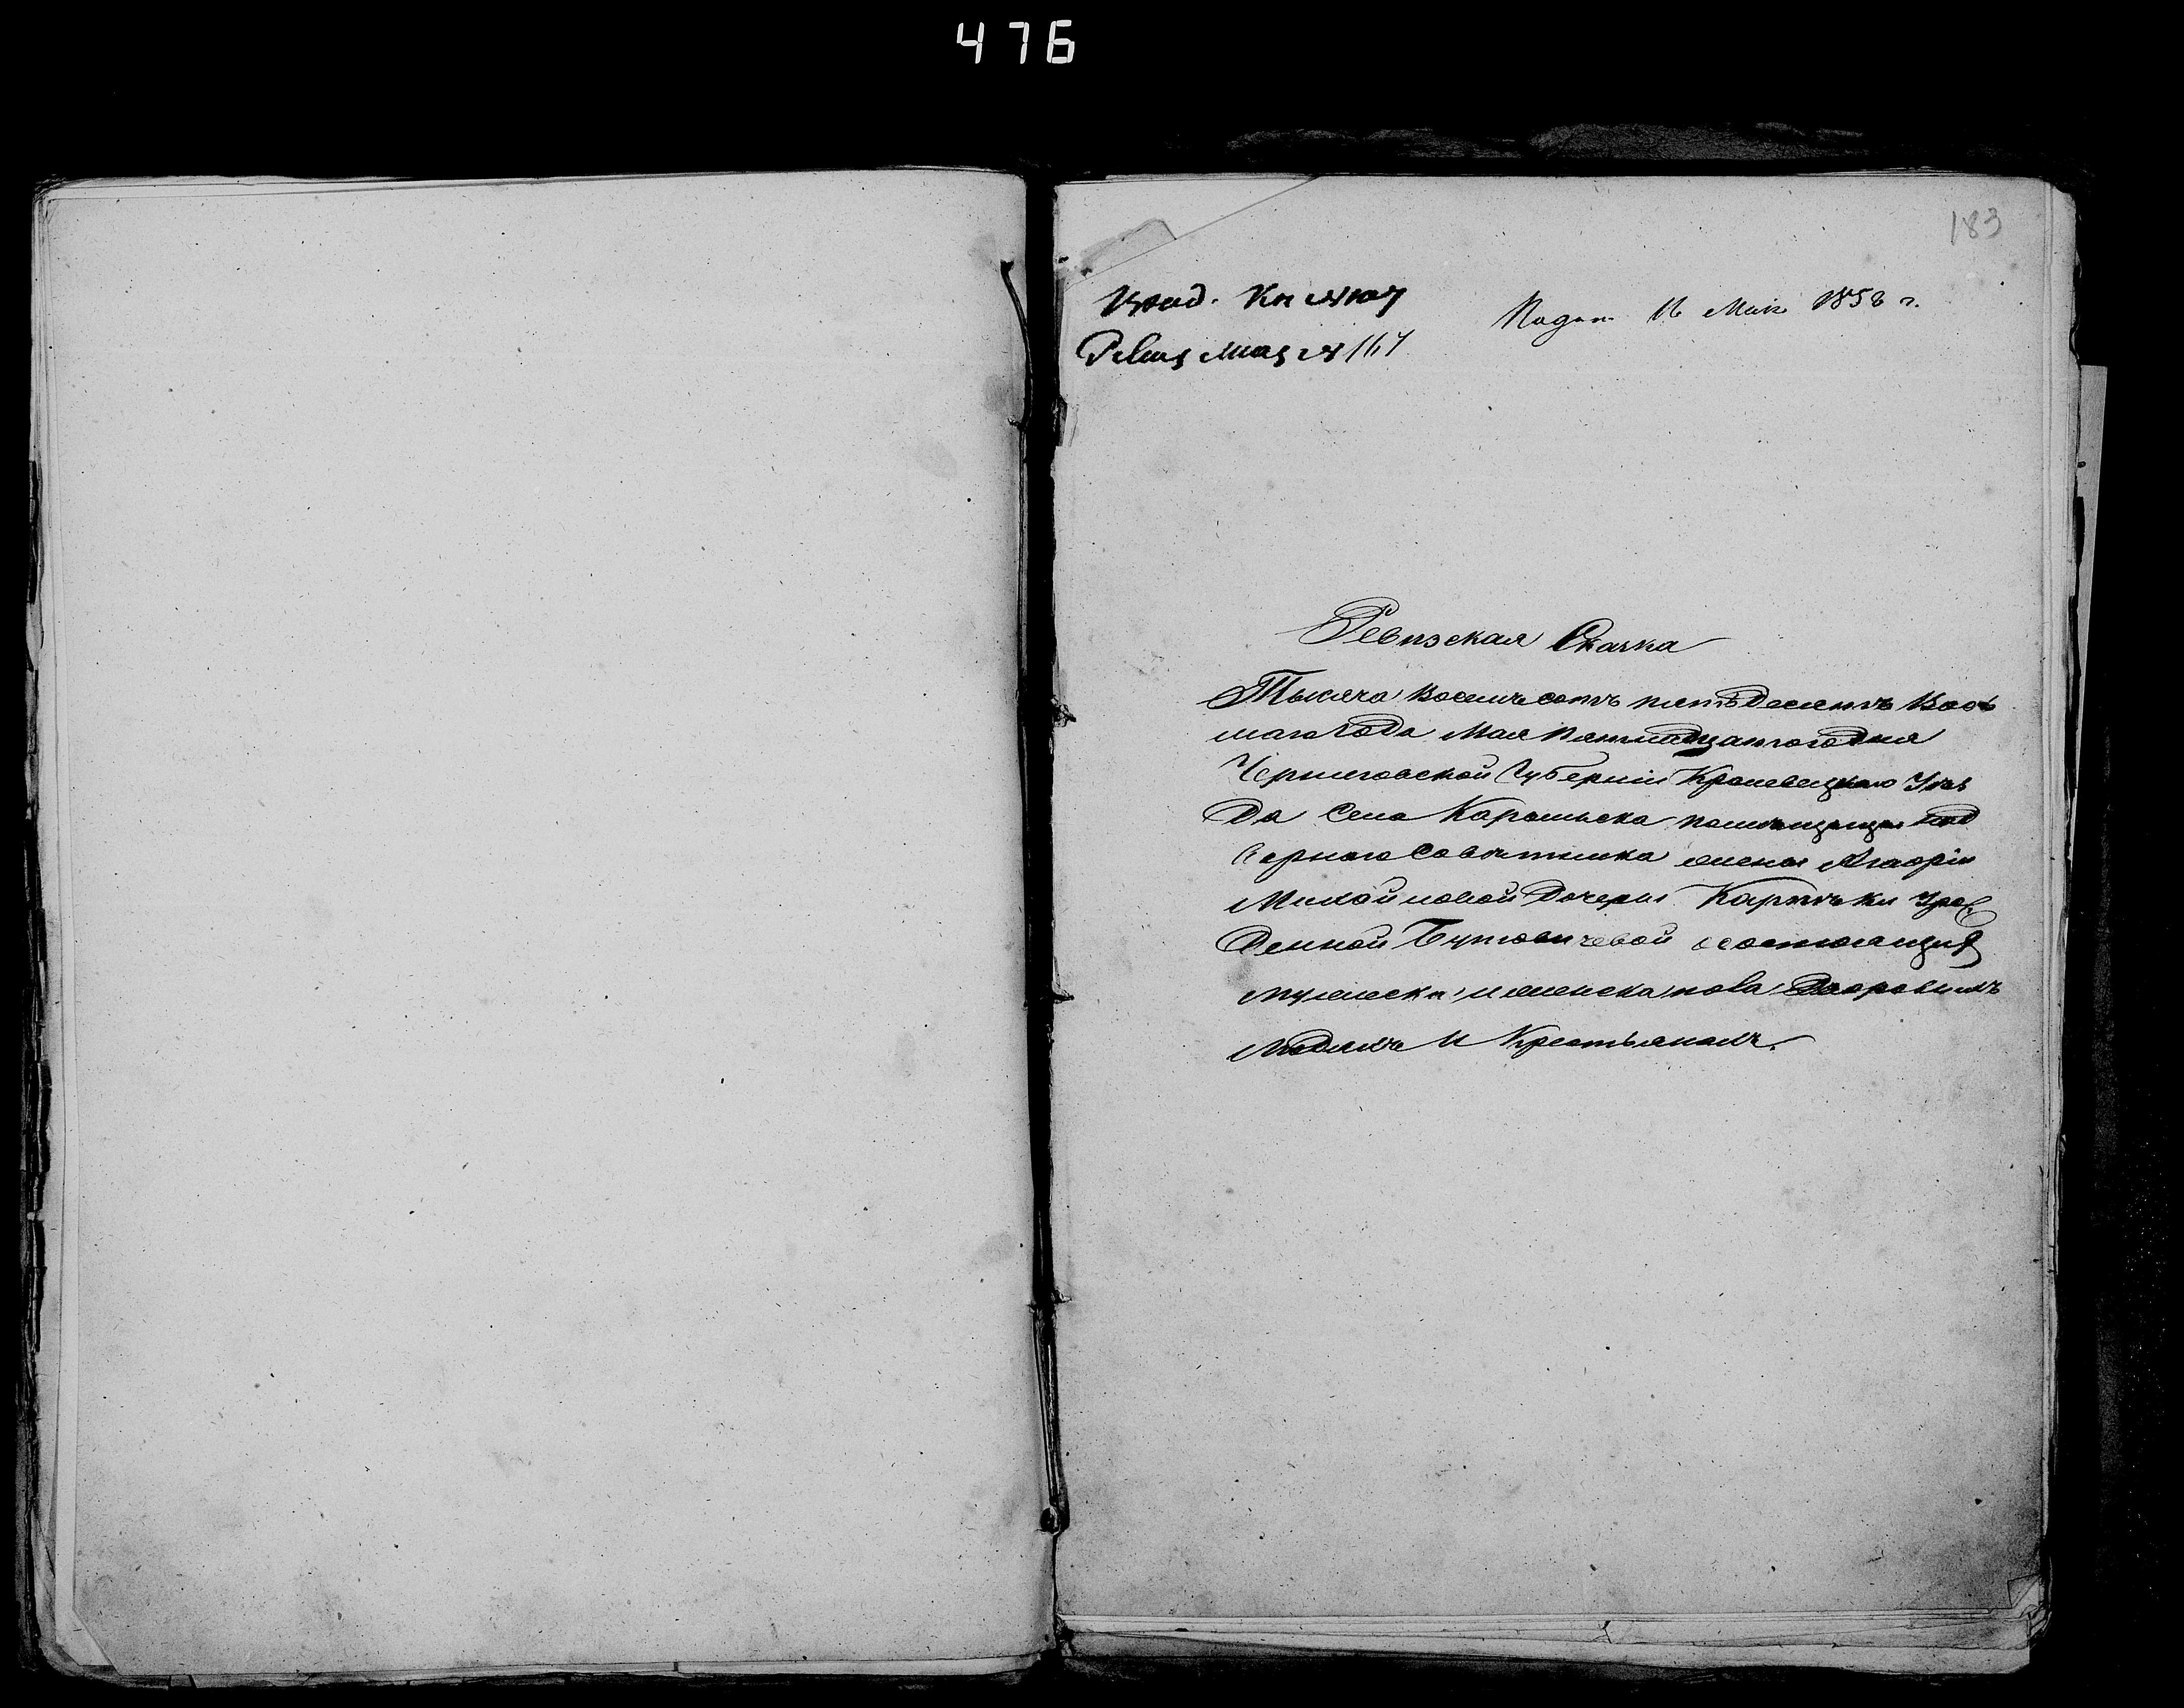 476
183
Вход. Кн №107
Ревиз №167
Подан 16 Мая 1858 г.
Ревизская Сказка
Тысяча Восемьсотъ пятьдесятъ Вось
маго Года Мая Пятнадцатого дня
Черниговской Губерніи Кролевецкаго Уѣз
да Села Карыльска помѣщицы над
ворного Совѣтника жены Агафіи
Михайловой Дочери Карпѣки Урож
денной Бутовичевой о состоящихъ
мужеска и женска пола Дворовыхъ
людяхъ И Крестьянахъ.